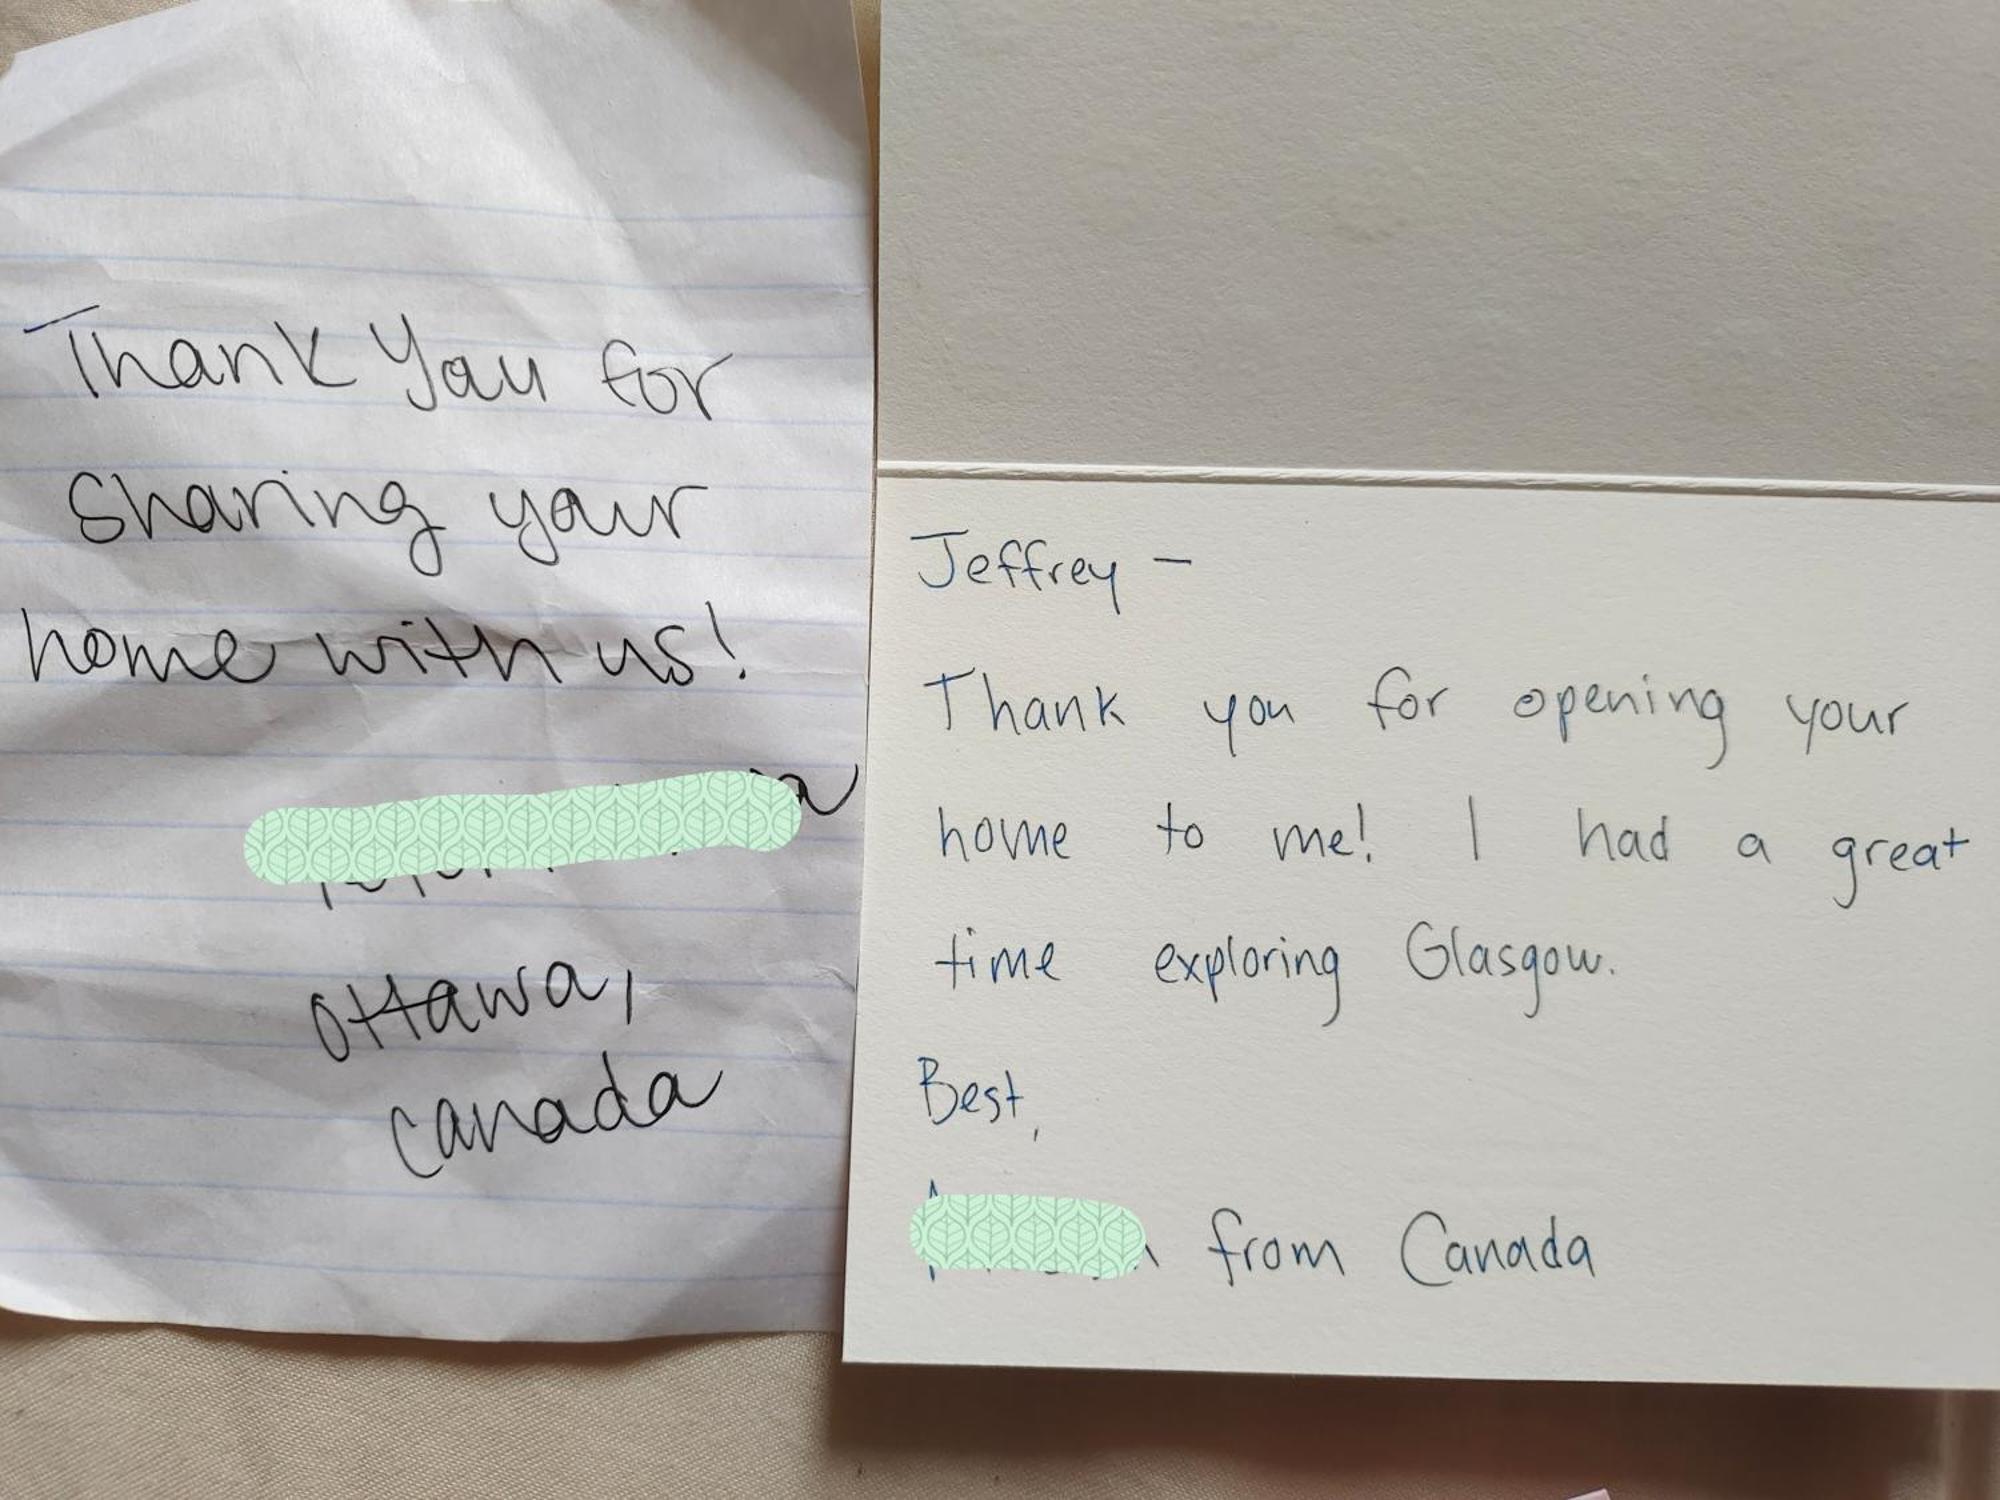 Thank You for
sharing your
home with us!
Ottawa,
Canada
Jeffrey –
Thank you for opening your
home to me! I had a great
time exploring Glasgow.
Best,
from Canada